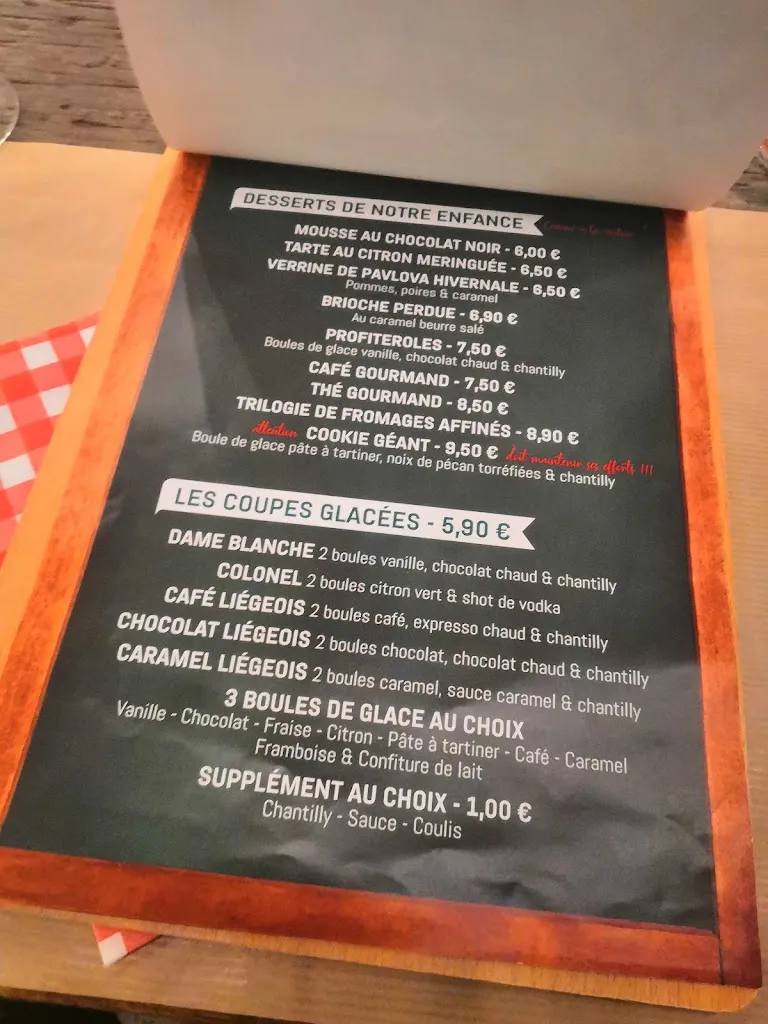 DESSERTS DE NOTRE ENFANCE
MOUSSE AU CHOCOLAT NOIR - 6,00 €
TARTE AU CITRON MERINGUÉE - 6,50 €
VERRINE DE PAVLOVA HIVERNALE - 6,50 €
Pommes, poires & caramel
BRIOCHE PERDUE - 6,90 €
Au caramel beurre salé
PROFITEROLES - 7,50 €
Boules de glace vanille, chocolat chaud & chantilly
CAFÉ GOURMAND - 7,50 €
THÉ GOURMAND - 8,50 €
TRILOGIE DE FROMAGES AFFINÉS - 8,90 €
attention COOKIE GÉANT - 9,50 € doit maintenir ses efforts !!!
Boule de glace pâte à tartiner, noix de pécan torréfiées & chantilly
LES COUPES GLACÉES - 5,90 €
DAME BLANCHE 2 boules vanille, chocolat chaud & chantilly
COLONEL 2 boules citron vert & shot de vodka
CAFÉ LIÉGEOIS 2 boules café, expresso chaud & chantilly
CHOCOLAT LIÉGEOIS 2 boules chocolat, chocolat chaud & chantilly
CARAMEL LIÉGEOIS 2 boules caramel, sauce caramel & chantilly
3 BOULES DE GLACE AU CHOIX
Vanille - Chocolat - Fraise - Citron - Pâte à tartiner - Café - Caramel
Framboise & Confiture de lait
SUPPLÉMENT AU CHOIX - 1,00 €
Chantilly - Sauce - Coulis